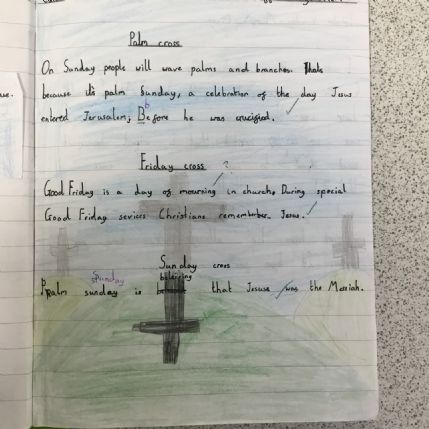 Palm cross
On Sunday people will wave palms and branches. Thats
because its palm Sunday, a celebration of the day Jesus
entered Jerusalem, Before he was crucified.
Friday cross ?
Good Friday is a day of mourning in church. During special
Good Friday sevices Christians remember Jesus.
Sunday cross
Sunday believing
Palm sunday is that Jesuse was the Messiah.